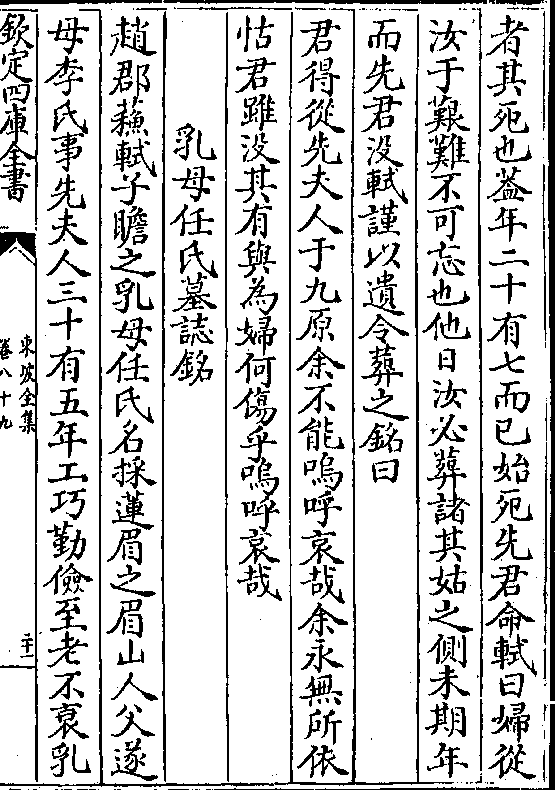 者其死也葢年二十有七而已始死先君命軾曰婦從
汝于艱難不可忘也他日汝必葬諸其姑之側未期年
而先君没軾謹以遺令葬之銘曰
君得從先夫人于九原余不能嗚呼哀哉余永無所依
怙君雖没其有與為婦何傷乎嗚呼哀哉
乳母任氏墓誌銘
趙郡蘓軾子瞻之乳母任氏名採蓮眉之眉山人父遂
母李氏事先夫人三十有五年工巧勤儉至老不衰乳
欽定四庫全書
東坡全集
卷八十九
二十一